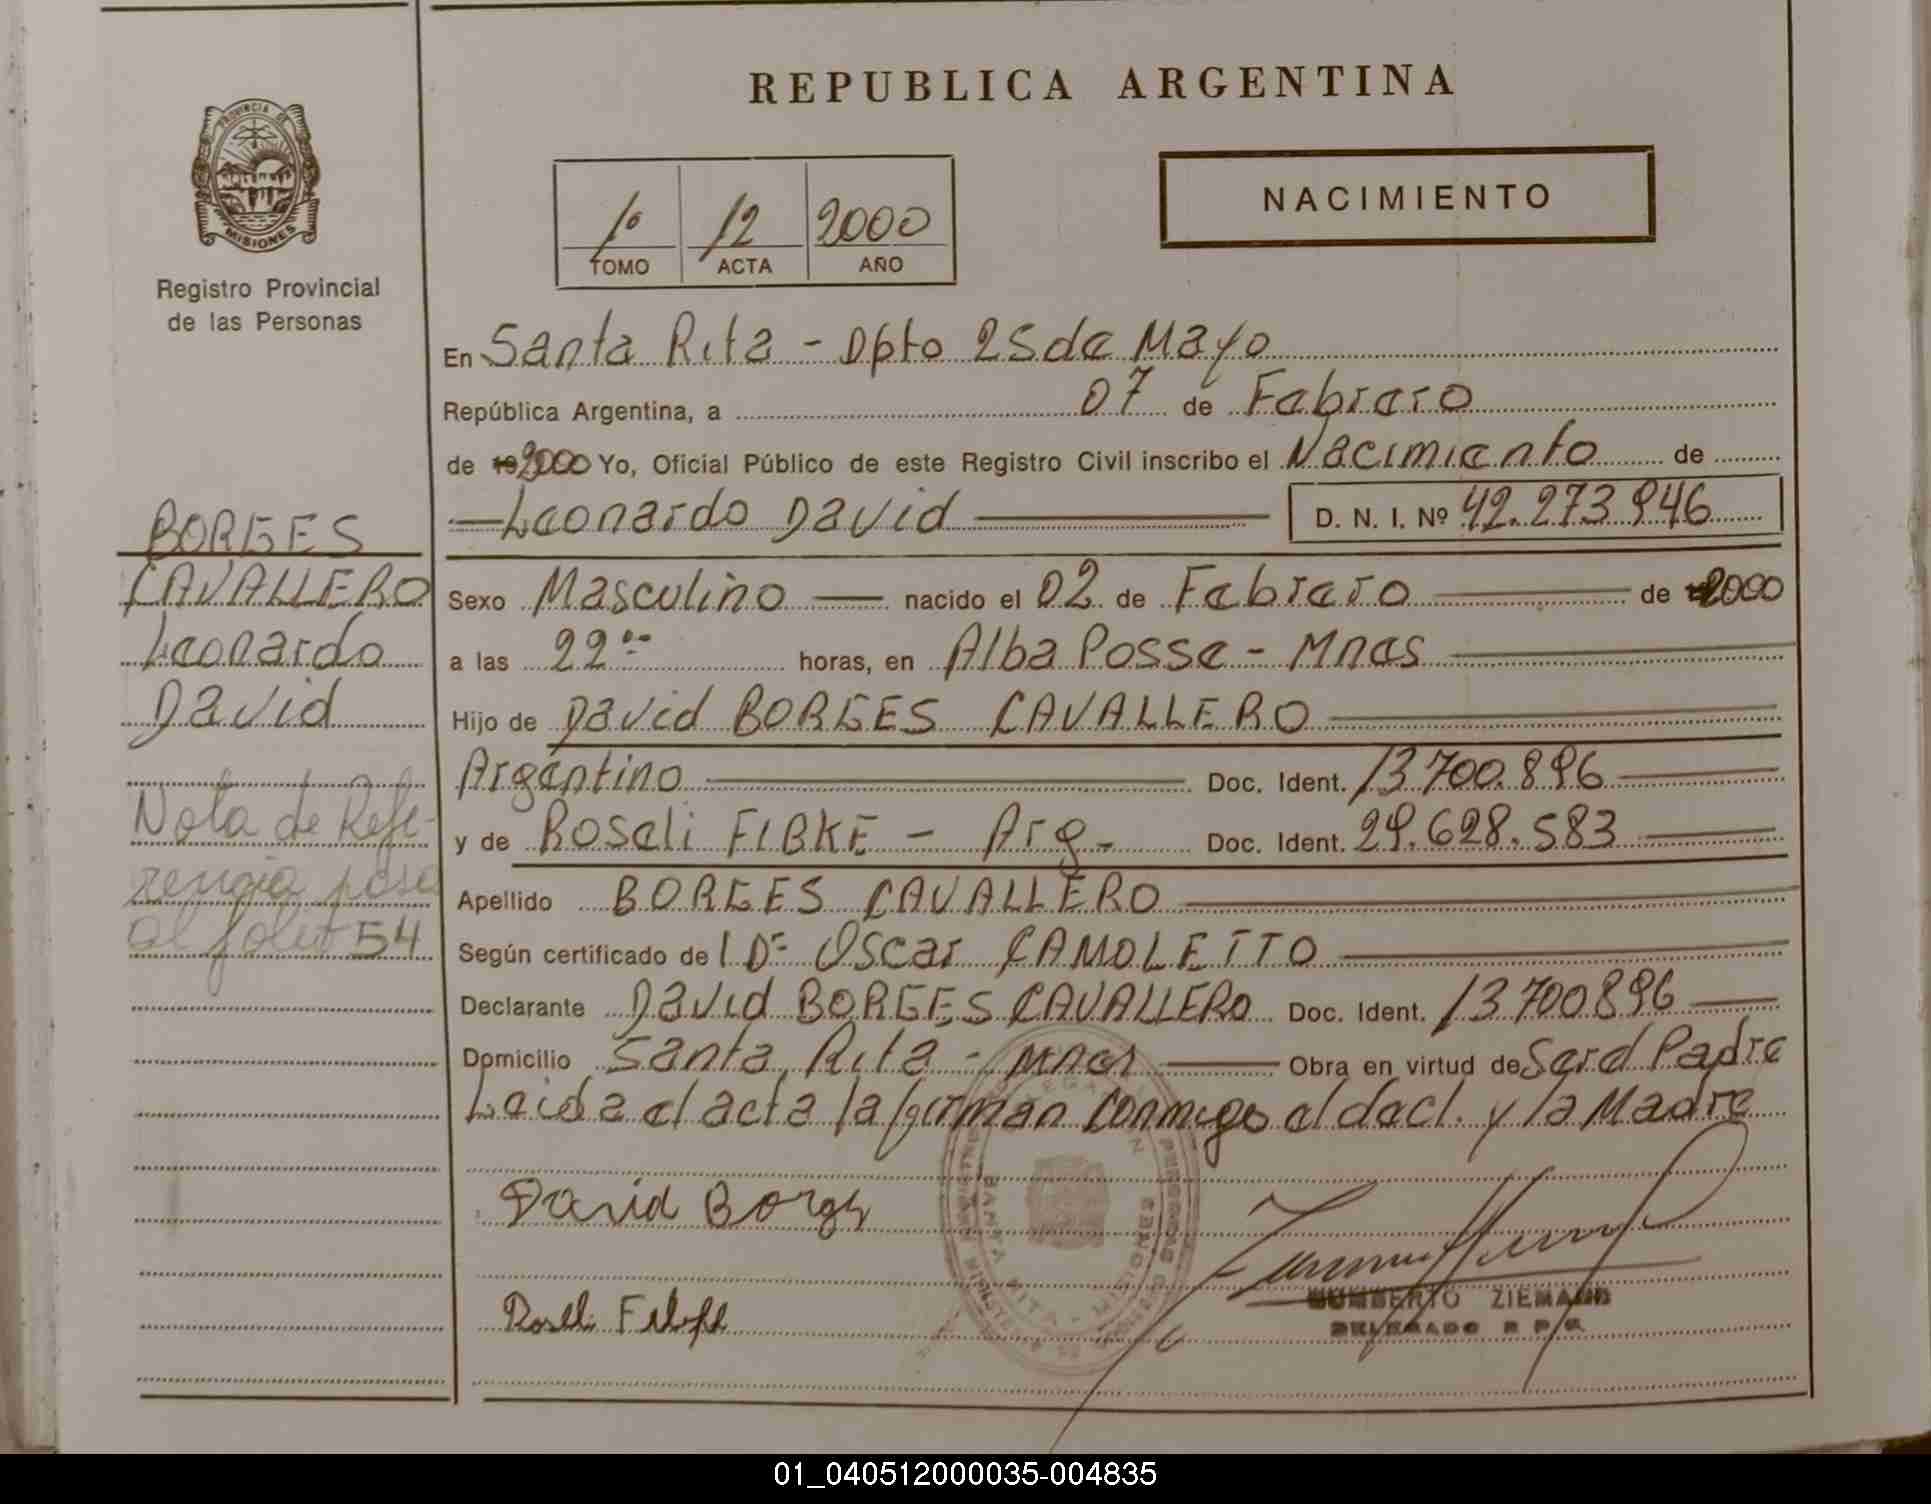 REPUBLICA ARGENTINA
PROVINCIA DE
MISIONES
Registro Provincial
de las Personas
1º 12 2000
TOMO ACTA AÑO
NACIMIENTO
En Santa Rita - Dpto 25 de Mayo
República Argentina, a 07 de Febrero
de 2000 Yo, Oficial Público de este Registro Civil inscribo el Nacimiento de
Leonardo David D. N. I. Nº 42.273.946
Sexo Masculino nacido el 02 de Febrero de 2000
a las 22 horas, en Alba Posse - Mnes
Hijo de David BORGES CAVALLERO
Argentino Doc. Ident. 13.700.896
y de Roseli FIBKE - Arg. Doc. Ident. 29.628.583
Apellido BORGES CAVALLERO
Según certificado de Dr Oscar CAMOLETTO
Declarante David BORGES CAVALLERO Doc. Ident. 13700896
Domicilio Santa Rita - Mnes Obra en virtud de Ser el Padre
Leida el acta la firman conmigo el decl. y la Madre
BORGES
CAVALLERO
Leonardo
David
Nota de Refe-
rencia pasa
al folio 54
David Borges
SANTA RITA
HUMBERTO ZIEMANN
DELEGADO R P P
01_040512000035-004835